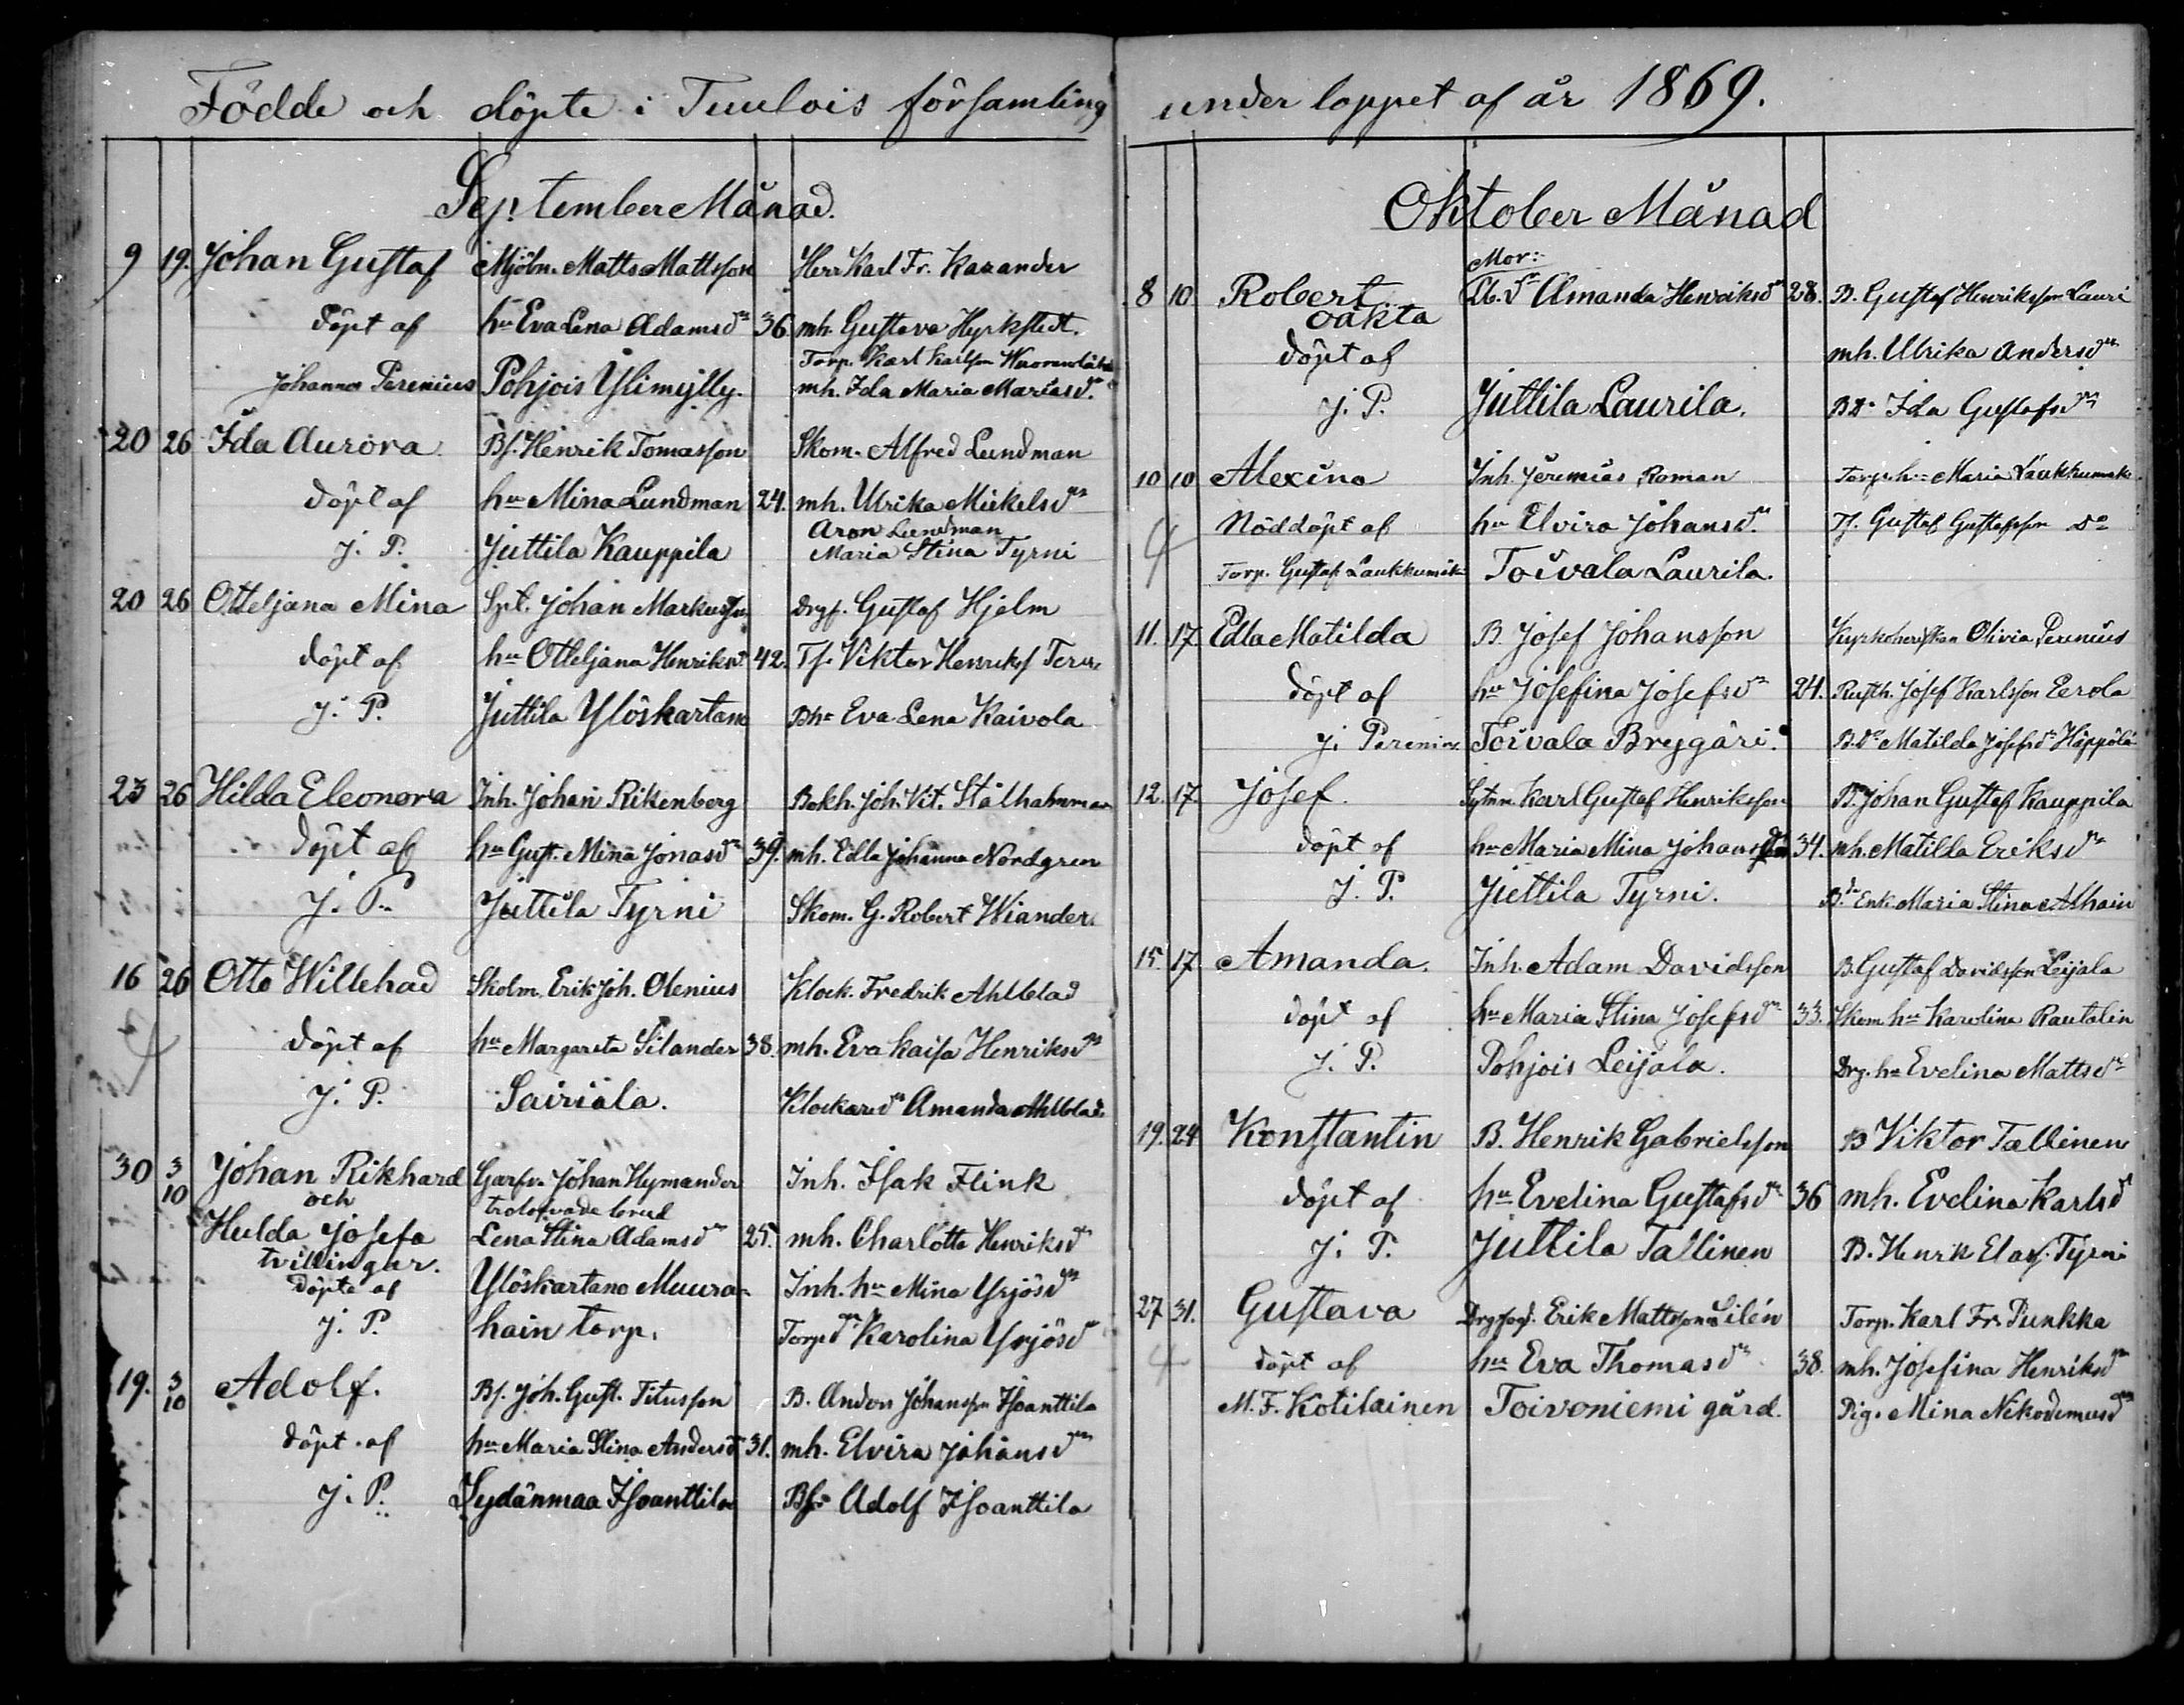 Födde och döpte i Tuulois församling
September Månad.
9 19. Johan Gustaf Mjöln. Matts Mattsson Herr Karl Fr. Kasander
döpt af hu Eva Lena Adamsdr 36. mh. Gustava Hyrkstedt.
Torp. Karl Karlsson
Johannes Perenius Pohjois Ylimylly. mh. Ida Maria Mariasdr.
20 26 Ida Aurora Bs. Henrik Tomasson Skom. Alfred Lundman
döpt af hu Mina Lundman 24. mh. Ulrika Mickelsdr
Aron Lundman
J. P. Juttila Kauppila Maria Stina Tyrni
20 26 Otteljana Mina Spt. Johan Markusson Drgf. Gustaf Hjelm
döpt af hu Otteljana Henriksdr. 42. Ts. Viktor Henrikss
J. P. Juttila Ylöskartano Bhu Eva Lena Kaivola
23 26 Hilda Eleonora Inh. Johan Rikenberg Bokh. Joh. Vit. Stålhammar
döpt af hu Gust. Mina Jonasdr 39. mh. Edla Johanna Nordgren
J. P. Juttila Tyrni Skom. G. Robert Wiander.
16 26 Otto Willehad Skolm. Erik Joh. Olenius Klock. Fredrik Ahlblad
döpt af hu Margareta Silander 38. mh. Eva Kaisa Henriksdr
J. P. Sairiala. Klockaredr Amanda Ahlblad
30 3/10 Johan Rikhard Garfv. Johan Hymander Inh. Isak Flink
och trolofvade brud
Hulda Josefa Lena Stina Adamsdr 25. mh. Charlotta Henriksdr
tvillingar.
döpte af Ylöskartano Muura- Inh. hu Mina Yrjösdr
J. P. hain torp. Torpdr Karolina Yrjösdr
19. 3/10 Adolf. Bs. Joh. Gust. Titusson B. Anders Johansson Isoanttila
döpt af hu Maria Stina Andersdr 31. mh. Elvira Johansdr
J. P. Sydänmaa Isoanttila Bs. Adolf Isoanttila
under loppet af år 1869.
Oktober Månad
Mor:
8 10 Robert Amanda Henriksdr 28. B. Gustaf Henriksson Lauri
oäkta
döpt af mh. Ulrika Andersdr
J. P. Juttila Laurila. Bdr Ida Gustafsdr
10 10 Alexina Inh. Jeremias Roman Torp. hu Maria Laukkumäki
Nöddöpt af hu Elvira Johansdr. Ts. Gustaf Gustafsson Do
Torp. Gustaf Laukkumäki Toivala Laurila.
11. 17 Edla Matilda B. Josef Johansson Kyrkoherdskan Olivia Perenius
döpt af hu Josefina Josefsdr 24. Rusth. Josef Karlsson Eerola
J. Perenius Toivala Bryggäri. B.dr Matilda Josefsdr Häppölä
12. 17 Josef. Sytnm. Karl Gustaf Henriksson B. Johan Gustaf Kauppila
döpt af hu Maria Mina Johansdr 34. mh. Matilda Eriksdr
J. P. Juttila Tyrni. Enk. Maria Stina Alhain
15. 17 Amanda. Inh. Adam Davidsson B. Gustaf Davidsson Leijala
döpt af hu Maria Stina Josefsdr 33. Skom. hu Karolina Rautalin
J. P. Pohjois Leijala. Drg. hu Evelina Mattsdr
19. 24 Konstantin B. Henrik Gabrielsson B Viktor Tallinen
döpt af hu Evelina Gustafsdr 36 mh. Evelina Karlsdr
J. P. Juttila Tallinen B. Henrik Elias. Tyrni
27 31. Gustava Drgfogd. Erik Mattsson Lilén Torp. Karl Fr. Punkka
döpt af hu Eva Thomasdr 38. mh. Josefina Henriksdr
M. F. Kotilainen Toivoniemi gård. Pig. Mina Nikodemusdr